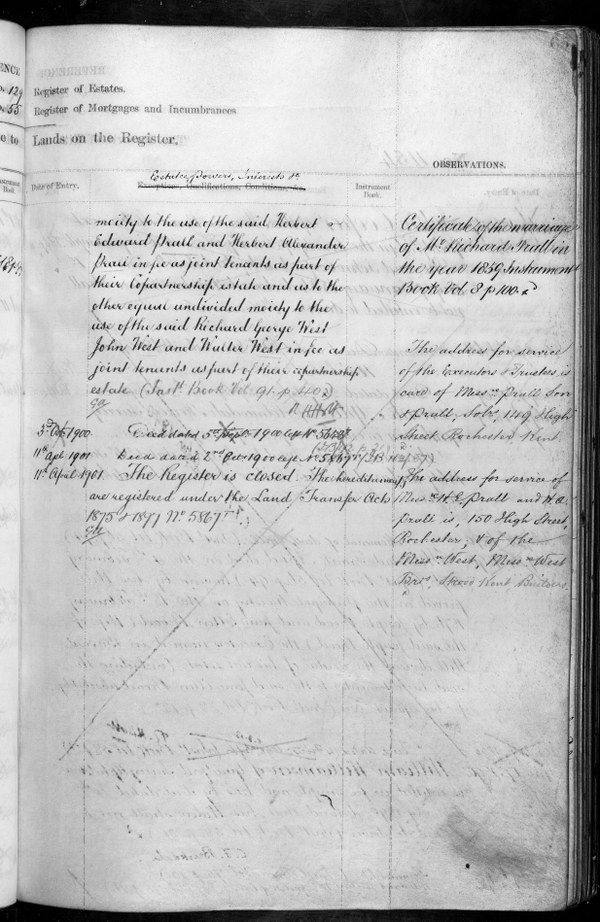 ENCE
129
55
e to
Instrument
Book.
Register of Estates.
Register of Mortgages and Incumbrances
Lands on the Register.
OBSERVATIONS.
Estates, Powers, Interests &c
Date of Entry.
Exception, Qualifications, Conditions, &c.
Instrument
Book.
moiety to the use of the said Herbert
Edward Prall and Herbert Alexander
Prall in fee as joint tenants as part of
their Copartnership estate and as to the
other equal undivided moiety to the
use of the said Richard George West
John West and Walter West in fee as
joint tenants as part of their copartnership
estate (Inst. Book Vol 91. p 40.)
3rd Oct 1900. Deed dated Sept. 1900
11th Apl 1901 Deed dated 2nd Oct 1900 No 5867
11th April 1901. The Register is closed. The hereditaments
are registered under the Land Transfer Acts
1875 & 1897 No 5867
Certificate of the marriage
of Mr Richard Prall in
the year 1859 Instrument
Book Vol. 8 p 100.
The address for service
of the Executors & Trustees is
care of Messrs Prall Son
& Prall, Solrs, 149 High
Street Rochester Kent.
The address for service of
Messrs H. E. Prall and H. A.
Prall is, 150 High Street,
Rochester; & of the
Messrs West, Messrs West
Kent Builders